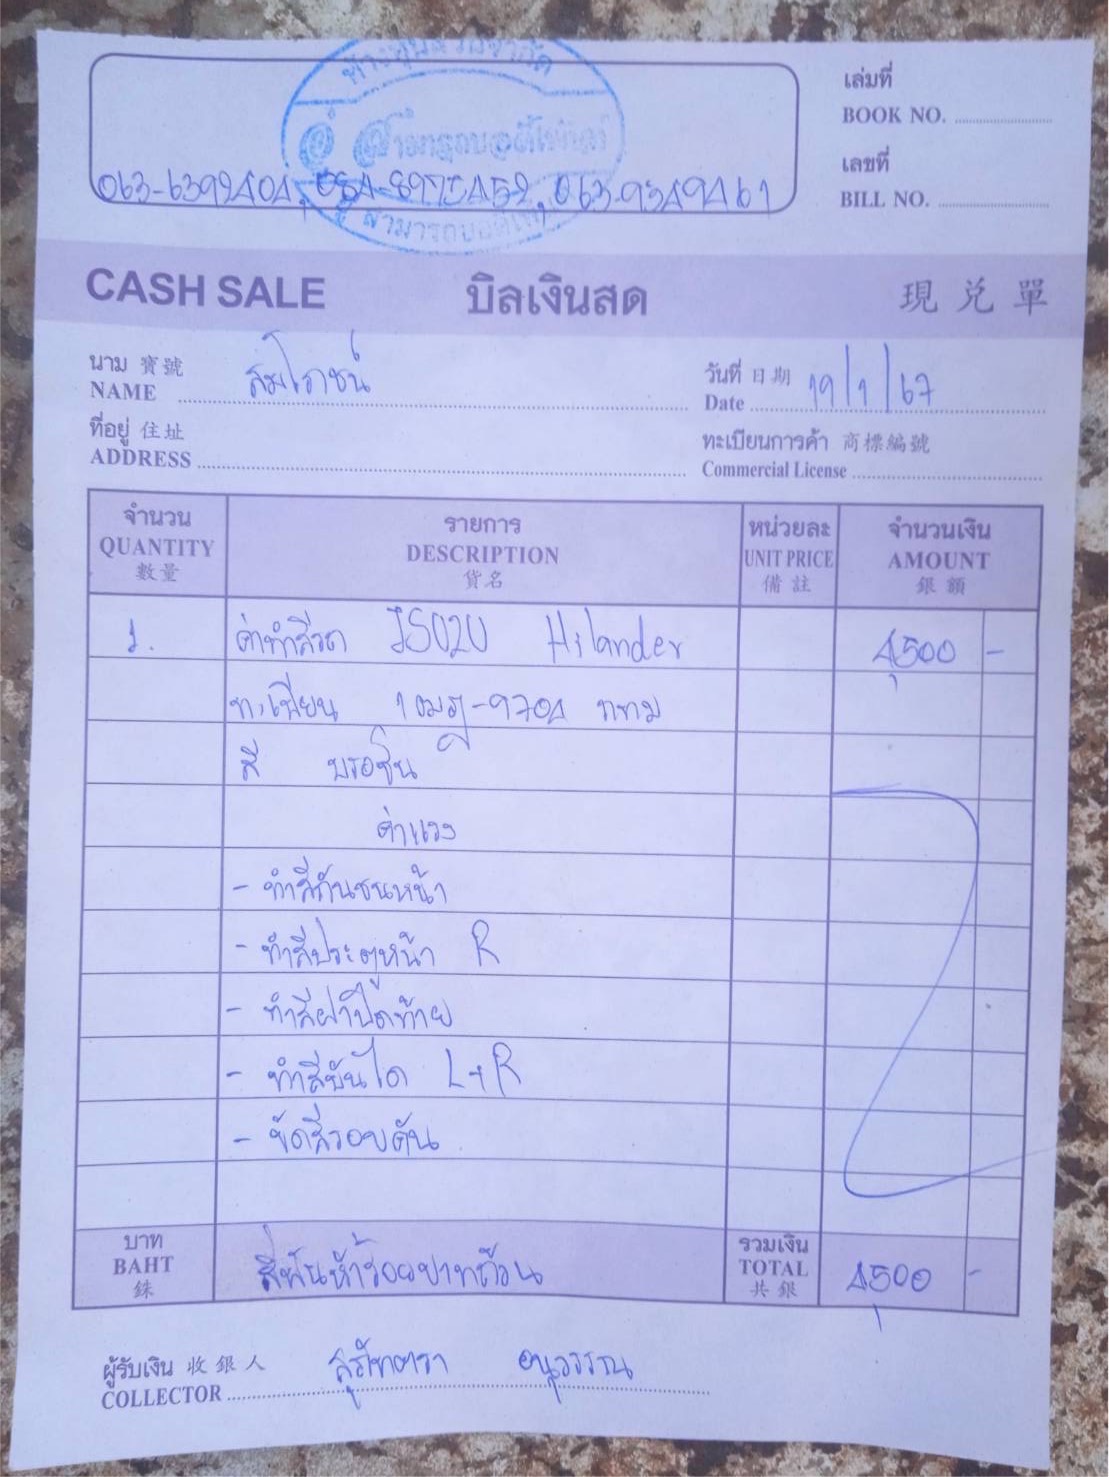 ห้างหุ้นส่วนจำกัด
อู่ สามารถบอดี้เพ้นท์
063-6392404, 084-8975452, 063-9349461
เล่มที่
BOOK NO.
เลขที่
BILL NO.
CASH SALE บิลเงินสด 現兌單
นาม 寶號
NAME สมโภชน์
วันที่ 日期
Date 19/1/67
ที่อยู่ 住址
ADDRESS
ทะเบียนการค้า 商標編號
Commercial License
จำนวน รายการ หน่วยละ จำนวนเงิน
QUANTITY DESCRIPTION UNIT PRICE AMOUNT
數量 貨名 備註 銀額
1. ค่าทำสีรถ ISUZU Hilander 4,500 -
ทะเบียน 9704 กทม
สี บรอซ์น
ค่าแรง
- ทำสีกันชนหน้า
- ทำสีประตูหน้า R
- ทำสีฝาปิดท้าย
- ทำสีบันได L+R
- ขัดสีรอบคัน
บาท
BAHT สี่พันห้าร้อยบาทถ้วน
銖
รวมเงิน
TOTAL 4,500 -
共銀
ผู้รับเงิน 收銀人
COLLECTOR สุภัทตรา อนุวรรณ